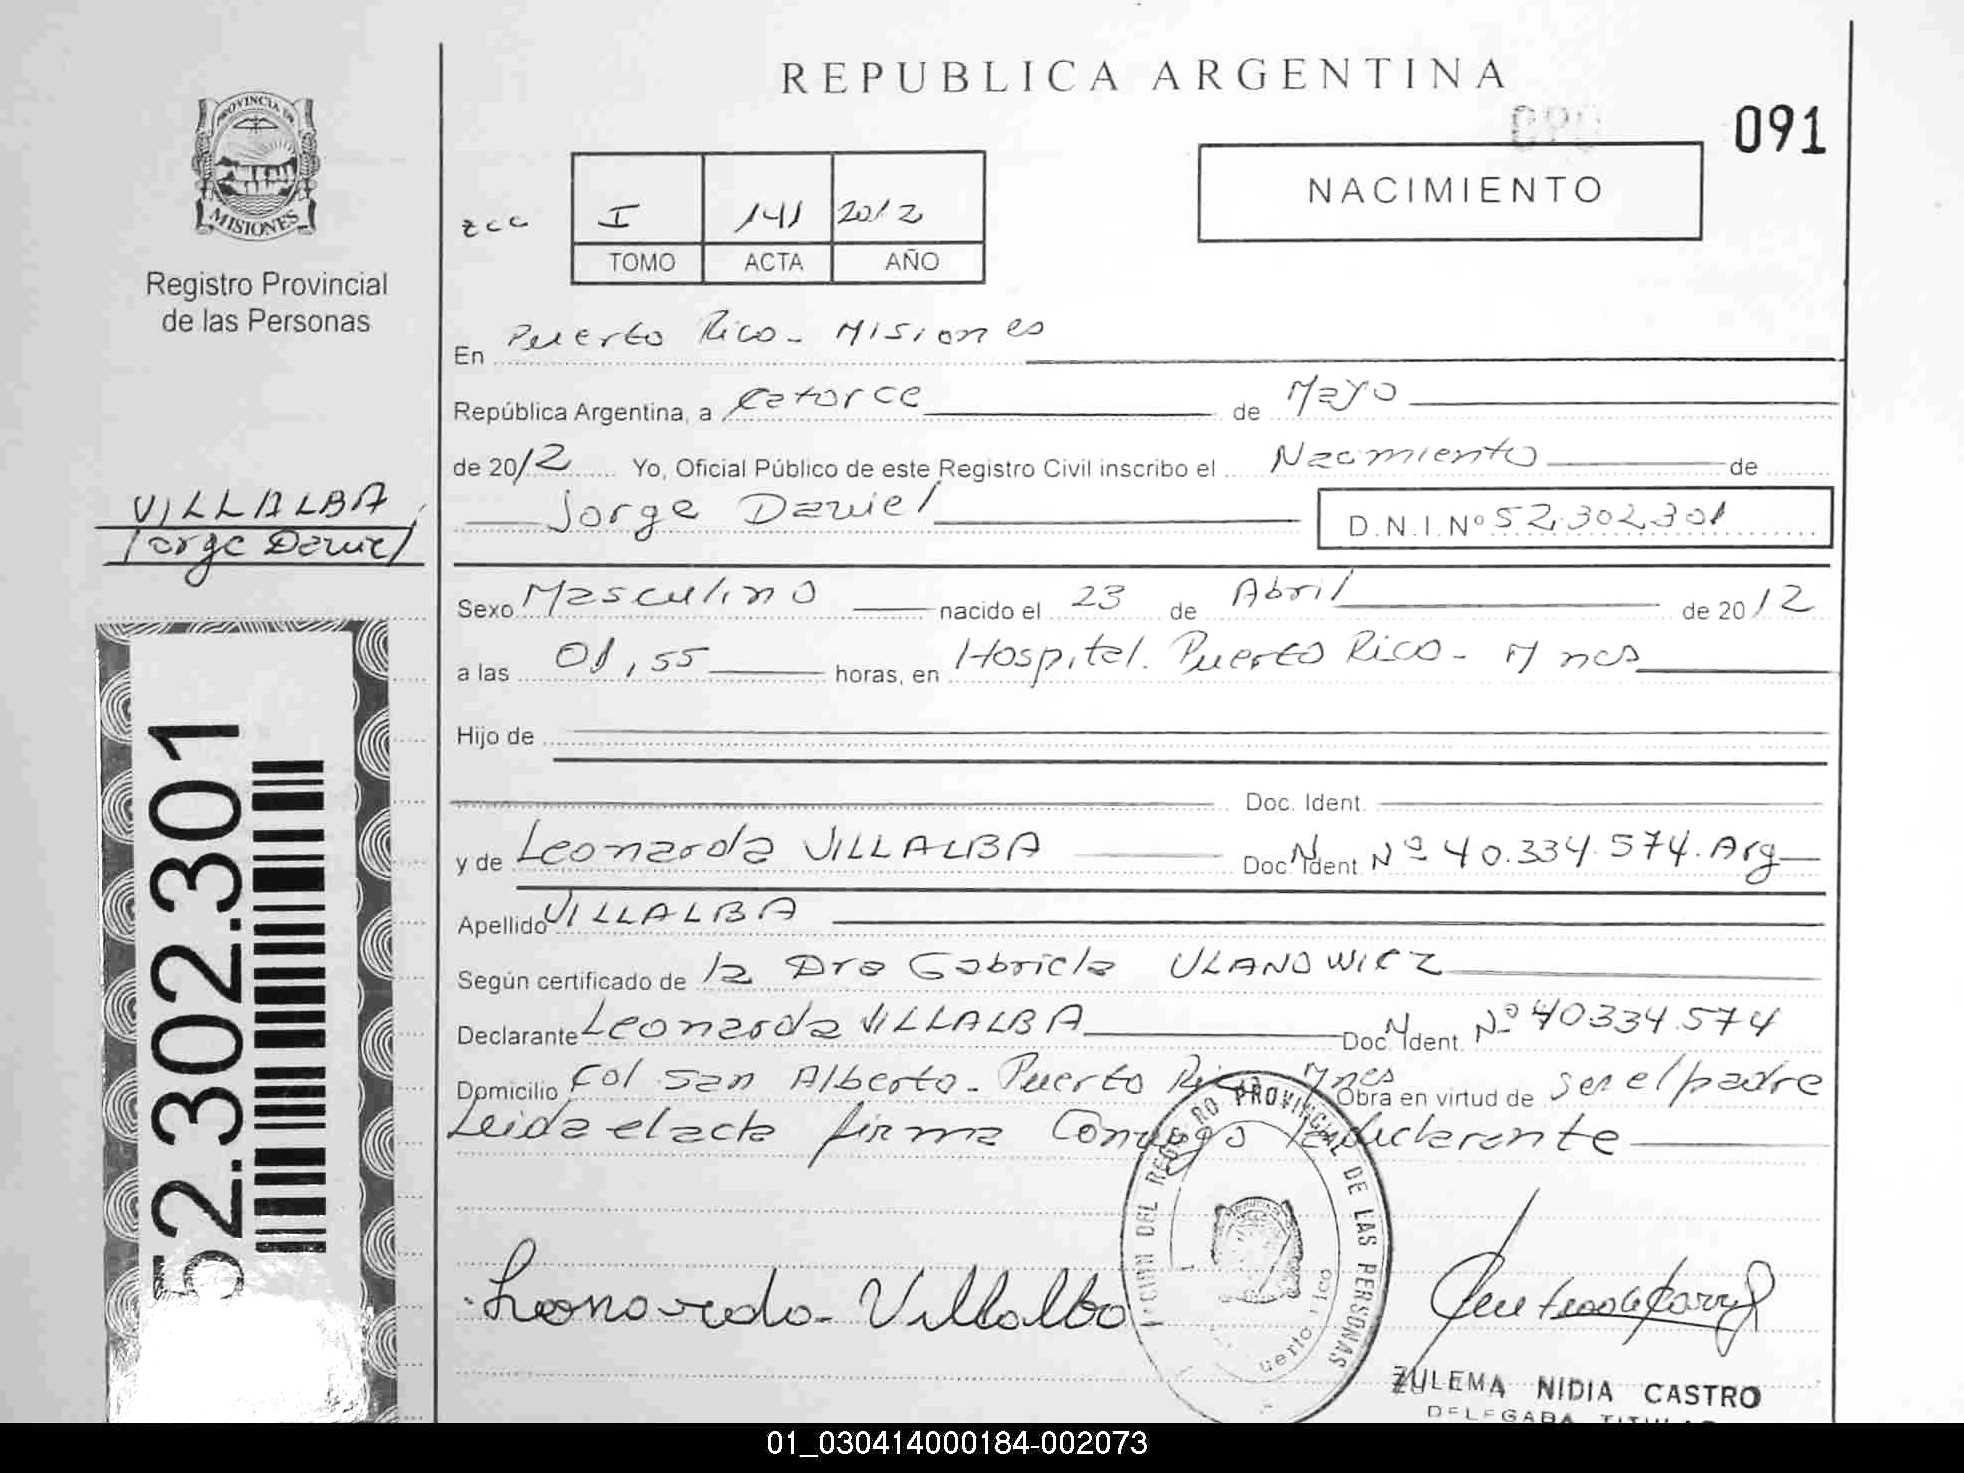 REPUBLICA ARGENTINA
091
PROVINCIA DE
MISIONES
Registro Provincial
de las Personas
zcc
I 141 2012
TOMO ACTA AÑO
NACIMIENTO
En Puerto Rico - Misiones
República Argentina, a Catorce de Mayo
de 2012 Yo, Oficial Público de este Registro Civil inscribo el Nacimiento de
Jorge Daniel D.N.I. Nº 52.302.301
VILLALBA
Jorge Daniel
Sexo Masculino nacido el 23 de Abril de 2012
a las 01,55 horas, en Hospital. Puerto Rico - Mnes
Hijo de
Doc. Ident.
y de Leonarda VILLALBA Doc. N. Ident Nº 40.334.574. Arg
Apellido VILLALBA
Según certificado de la Dra Gabriela ULANOWICZ
Declarante Leonarda VILLALBA Doc. N. Ident. Nº 40334.574
Domicilio Col San Alberto - Puerto Rico Mnes Obra en virtud de ser el padre
Leida el acta firma Conmigo la declarante
52.302.301
REGISTRO PROVINCIAL DE LAS PERSONAS
Leonarda - Villalba -
ZULEMA NIDIA CASTRO
01_030414000184-002073